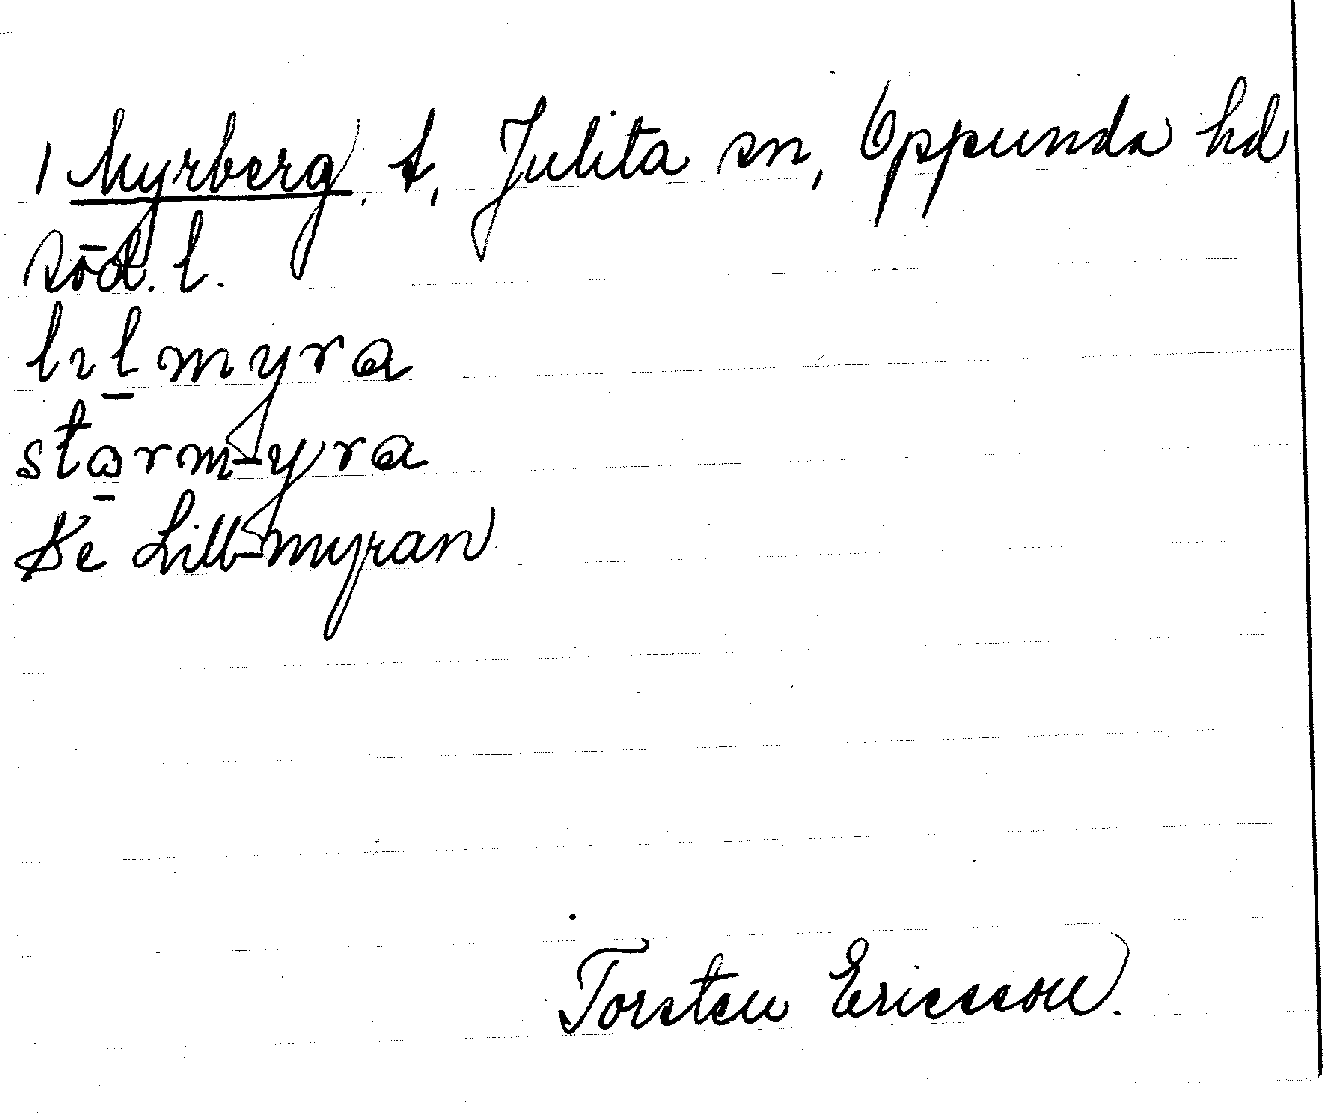 1 Myrberg, t, Julita sn, Oppunda hd
Söd. l.
lılmyra
starmyra
Se Lill-myran
Torsten Ericsson.